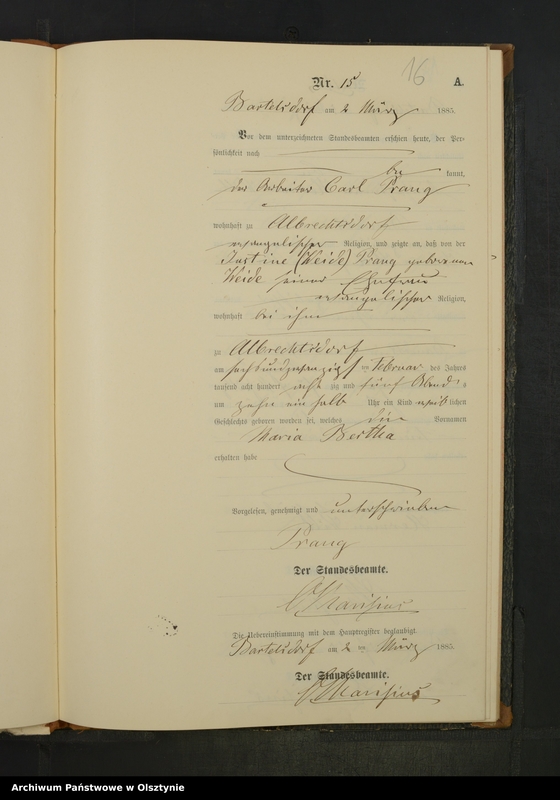 16
Nr. 15 A.
Bartelsdorf am 2 März 1885.
Vor dem unterzeichneten Standesbeamten erschien heute, der Per-
sönlichkeit nach
be kannt,
der Arbeiter Carl Prang
wohnhaft zu Albrechtsdorf
evangelischer Religion, und zeigte an, daß von der
Justine (Weide) Prang geborenen
Weide seiner Ehefrau
evangelischer Religion,
wohnhaft bei ihm
zu Albrechtsdorf
am sechsundzwanzigsten Februar des Jahres
tausend acht hundert acht zig und fünf Abends
um zehn ein halb Uhr ein Kind weib lichen
Geschlechts geboren worden sei, welches die Vornamen
Maria Bertha
erhalten habe
Vorgelesen, genehmigt und unterschrieben
Prang
Der Standesbeamte.
Die Uebereinstimmung mit dem Hauptregister beglaubigt.
Bartelsdorf am 2 ten März 1885.
Der Standesbeamte.
Archiwum Państwowe w Olsztynie